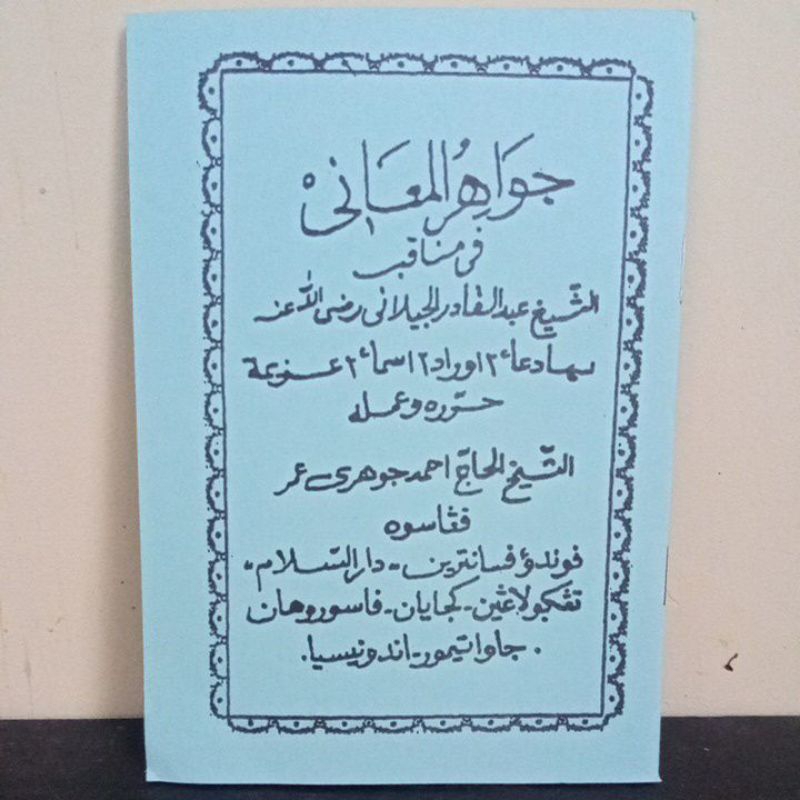 جَوَاهِرُ المَعَانِى
فى مناقب
الشّيخ عبد القادر الجيلانى رضى اللّٰه عنه
بها دعاء٢ اوراد٢ اسماء٢ عزيمة
حرّره وعمله
الشّيخ الحاجّ احمد جوهرى عمر
فڠاسوه
فوندوء فسانترين - دار السّلام -
تڠكولاڠين - كجايان - فاسوروهان
جاوا تيمور - اندونيسيا.